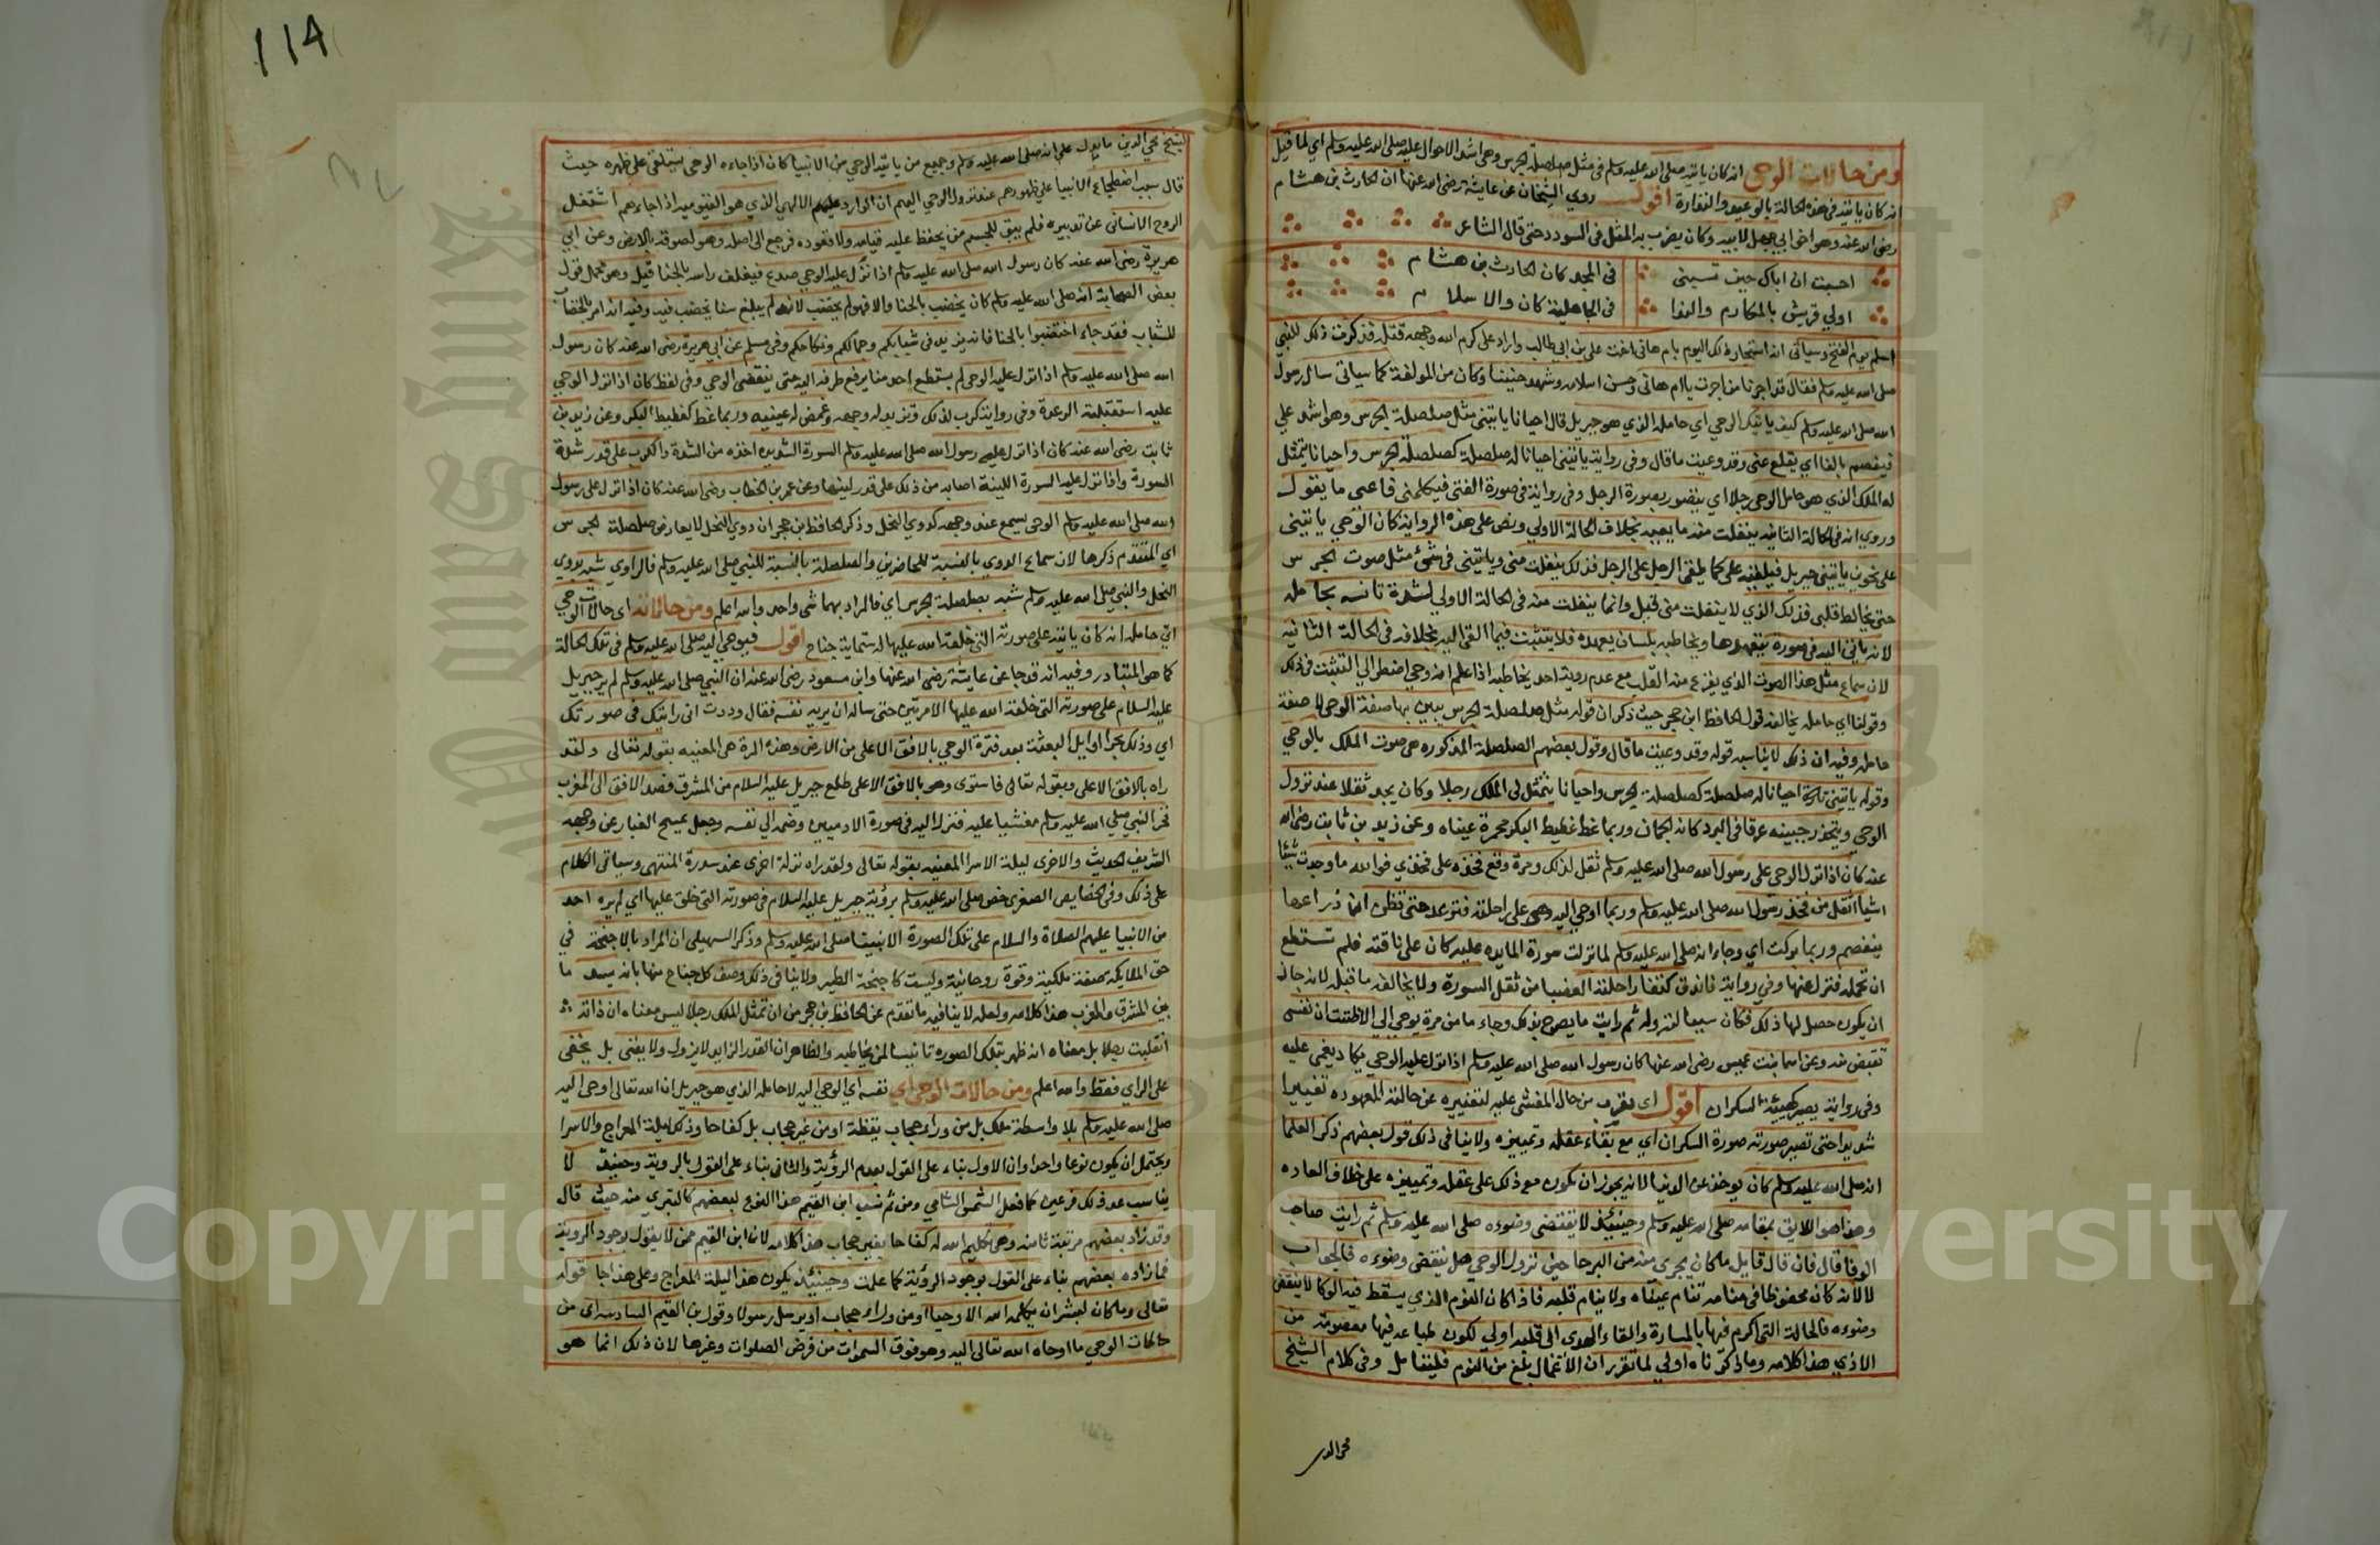 ومن حالات الوحي انه كان ياتيه صلى الله عليه وسلم في مثل صلصلة الجرس وهي اشد الاحوال عليه صلى الله عليه وسلم اي لما قيل
انه كان ياتيه في هذه الحالة بالوعيد والنذارة اقول روي الشيخان عن عايشة رضي الله عنها ان الحارث بن هشام
رضي الله عنه وهو اخو ابي جهل لابيه وكان يضرب به المثل في السودد حتى قال الشاعر
احسبت ان اباك حين تسبني في المجد كان الحارث بن هشام
اولي قريش بالمكارم والندا في الجاهلية كان والاسلام
اسلم يوم الفتح وسياتي انه استجار ذلك اليوم بام هاني اخت علي بن ابي طالب واراد علي كرم الله وجهه قتله فذكرت ذلك للنبي
صلى الله عليه وسلم فقال قد اجرنا من اجرت يا ام هاني وحسن اسلامه وشهد حنينا وكان من المولفة كما سياتي سال رسول
الله صلى الله عليه وسلم كيف ياتيك الوحي اي حامله الذي هو جبريل قال احيانا ياتيني مثل صلصلة الجرس وهو اشد علي
فيفصم بالفا اي يقلع عني وقد وعيت ما قال وفي رواية ياتيني احيانا له صلصلة كصلصلة الجرس واحيانا يتمثل
له الملك الذي هو حامل الوحي رجلا اي يتصور بصورة الرجل وفي رواية في صورة الفتى فيكلمني فاعي ما يقول
وروي انه في الحالة الثانية ينفلت منه ما يعيه بخلاف الحالة الاولي ونص على هذه الرواية كان الوحي ياتيني
على نحوين ياتيني جبريل فيلقيه علي كما يلقي الرجل على الرجل فذلك ينفلت مني وياتيني في شئ مثل صوت الجرس
حتى يخالط قلبي فذلك الذي لا ينفلت مني قيل وانما ينفلت منه في الحالة الاولي لشدة تانسه بحامله
لانه ياتي اليه في صورة يعهدها ويخاطبه بلسان يعهده فلا يتثبت فيما القي اليه بخلافه في الحالة الثانية
لان سماع مثل هذا الصوت الذي يفزع منه القلب مع عدم روية احد يخاطبه اذا علم انه وحي اضطر الي التثبت في ذلك
وقولنا اي حامله يخالفه قول الحافظ ابن حجر حيث ذكر ان قوله مثل صلصلة الجرس يبين بها صفة الوحي لا صفة
حامله وفيه ان ذلك لا يناسبه قوله وقد وعيت ما قال وقول بعضهم الصلصلة المذكورة هي صوت الملك بالوحي
وقوله ياتيني تارة احيانا له صلصلة كصلصلة الجرس واحيانا يتمثل لي الملك رجلا وكان يجد ثقلا عند نزول
الوحي ويتحدر جبينه عرقا في البرد كانه الجمان وربما غط غطيط البكر محمرة عيناه وعن زيد بن ثابت رضي الله
عنه كان اذا نزل الوحي على رسول الله صلى الله عليه وسلم ثقل لذلك ومرة وقع فخذه على فخذي فوالله ما وجدت شيئا
اثقل من فخذ رسول الله صلى الله عليه وسلم وربما اوحي اليه وهو على راحلته فترعد حتى تظن ان ذراعها
ينفصم وربما بركت اي وجاء انه صلى الله عليه وسلم لما نزلت سورة المايدة عليه كان على ناقته فلم تستطع
ان تحمله فنزل عنها وفي رواية فاندق كتف راحلته العضبا من ثقل السورة ولا يخالفه ما قبله لانه جاز
ان يكون حصل لها ذلك فكان سببا لنزوله ثم رايت ما يصرح بذلك وجاء ما من مرة يوحي الي الا ظننت ان نفسي
تقبض منه وعن اسما بنت عميس رضي الله عنها كان رسول الله صلى الله عليه وسلم اذا نزل عليه الوحي يكاد يغمى عليه
وفي رواية يصير كهيئة السكران اقول اي يقرب من حال المغشي عليه لتغيره عن حالته المعهودة تغييرا
شديدا حتى تصير صورته صورة السكران اي مع بقاء عقله وتمييزه ولا ينافي ذلك قول بعضهم ذكر العلما
انه صلى الله عليه وسلم كان يوخذ عن الدنيا لانه يجوز ان يكون مع ذلك على عقله وتمييزه على خلاف العادة
وهذا هو اللايق بمقامه صلى الله عليه وسلم وحينئذ لا ينتقض وضوءه صلى الله عليه وسلم ثم رايت صاحب
الوفا قال فان قال قايل ما كان يجري منه من البرحا حين نزول الوحي هل ينتقض وضوءه فالجواب
لا لانه كان محفوظا في منامه تنام عيناه ولا ينام قلبه فاذا كان النوم الذي يسقط فيه الوكا لا ينقض
وضوءه فالحالة التي اكرم فيها بالمسارة والقاء الهدى الى قلبه اولي لكون طباعه فيها معصومة من
الاذي هذا كلامه وما ذكرناه اولي لما تقرر ان الاغما ابلغ من النوم فليتامل وفي كلام الشيخ
محي الدين
114
الشيخ محي الدين ما يدل على انه صلى الله عليه وسلم وجميع من ياتيه الوحي من الانبيا كان اذا جاءه الوحي يستلقي على ظهره حيث
قال سبب اضطجاع الانبيا على ظهورهم عند نزول الوحي اليهم ان الوارد الالهي الذي هو القيومية اذا جاءهم اشتغل
الروح الانساني عن تدبيره فلم يبق للجسم من يحفظ عليه قيامه ولا قعوده فرجع الى اصله وهو لصوقه بالارض وعن ابي
هريرة رضي الله عنه كان رسول الله صلى الله عليه وسلم اذا نزل عليه الوحي صدع فيغلف راسه بالحنا قيل وهو محمل قول
بعض الصحابة انه صلى الله عليه وسلم كان يخضب بالحنا والا فهو لم يخضب لانه لم يبلغ سنا يخضب فيه وفيه انه امر بالخضاب
للشباب فقد جاء اختضبوا بالحنا فانه يزيد في شبابكم وجمالكم ونكاحكم وفي مسلم عن ابي هريرة رضي الله عنه كان رسول
الله صلى الله عليه وسلم اذا نزل عليه الوحي لم يستطع احد منا يرفع طرفه اليه حتى ينقضي الوحي وفي لفظ كان اذا نزل الوحي
عليه استقبلته الرعدة وفي رواية كرب لذلك وتربد له وجهه وغمض له عينيه وربما غط كغطيط البكر وعن زيد بن
ثابت رضي الله عنه كان اذا نزل على رسول الله صلى الله عليه وسلم السورة الشديدة اخذه من الشدة والكرب على قدر شدة
السورة واذا نزل عليه السورة اللينة اصابه من ذلك على قدر لينها وعن عمر بن الخطاب رضي الله عنه كان اذا نزل على رسول
الله صلى الله عليه وسلم الوحي يسمع عند وجهه كدوي النحل وذكر الحافظ بن حجر ان دوي النحل لا يعارض صلصلة الجرس
اي المتقدم ذكرها لان سماع الدوي بالنسبة للحاضرين والصلصلة بالنسبة للنبي صلى الله عليه وسلم فالراوي شبه بدوي
النحل والنبي صلى الله عليه وسلم شبه بصلصلة الجرس اي فالمراد بهما شئ واحد والله اعلم ومن حالاته اي حالات الوحي
اي حامله انه كان ياتيه على صورته التي خلقه الله عليها له ستماية جناح اقول فيوحي اليه صلى الله عليه وسلم في تلك الحالة
كما هو المتبادر وفيه انه قد جا عن عايشة رضي الله عنها وابن مسعود رضي الله عنه ان النبي صلى الله عليه وسلم لم ير جبريل
عليه السلام على صورته التي خلقه الله عليها الا مرتين حتى ساله ان يريه نفسه فقال وددت اني رايتك في صورتك
اي وذلك بحرا اوايل البعثة بعد فترة الوحي بالافق الاعلى من الارض وهذه المرة هي المعنية بقوله تعالى ولقد
راه بالافق الاعلى وبقوله تعالى فاستوى وهو بالافق الاعلى طلع جبريل عليه السلام من المشرق فسد الافق الى المغرب
فخر النبي صلى الله عليه وسلم مغشيا عليه فنزل اليه في صورة الادميين وضمه الي نفسه وجعل يمسح الغبار عن وجهه
الشريف الحديث والاخرى ليلة الاسرا المعنية بقوله تعالى ولقد راه نزلة اخرى عند سدرة المنتهى وسياتي الكلام
على ذلك وفي الخصايص الصغرى خص صلى الله عليه وسلم برؤية جبريل عليه السلام في صورته التي خلق عليها اي لم يره احد
من الانبيا عليهم الصلاة والسلام على تلك الصورة الا نبينا صلى الله عليه وسلم وذكر السهيلي ان المراد بالاجنحة في
حق الملايكة صفة ملكية وقوة روحانية وليست كاجنحة الطير ولا ينافي ذلك وصف كل جناح منها بانه يسد ما
بين المشرق والمغرب هذا كلامه ولعله لا ينافيه ما تقدم عن الحافظ بن حجر من ان تمثل الملك رجلا ليس معناه ان ذاته
انقلبت رجلا بل معناه انه ظهر بتلك الصورة تانيسا لمن يخاطبه والظاهر ان القدر الزايد لا يزول ولا يفنى بل يخفى
على الراي فقط والله اعلم ومن حالات الوحي اي نفسه اي الوحي اليه لا حامله الذي هو جبريل ان الله تعالى اوحى اليه
صلى الله عليه وسلم بلا واسطة ملك بل من وراء حجاب يقظة او من غير حجاب بل كفاحا وذلك ليلة المعراج والاسرا
ويحتمل ان يكون نوعا واحدا وان الاول بناء على القول بعدم الرؤية والثاني بناء على القول بالروية وحينئذ لا
يناسب عد ذلك نوعين كما فعل الشمس الشامي ومن ثم نسب ابن القيم هذا النوع لبعضهم كالتبري منه حيث قال
وقد زاد بعضهم مرتبة ثامنة وهي تكليم الله له كفاحا بغير حجاب هذا كلامه لان ابن القيم ممن لا يقول بوجود الروية
فما زاده بعضهم بناء على القول بوجود الرؤية كما علمت وحينئذ يكون هذا ليلة المعراج وعلى هذا جا قوله
تعالى وما كان لبشر ان يكلمه الله الا وحيا او من وراء حجاب او يرسل رسولا وقول بن القيم السادسة اي من
حالات الوحي ما اوحاه الله تعالى اليه وهو فوق السموات من فرض الصلوات وغيرها لان ذلك انما هو
Copyright © King Saud University